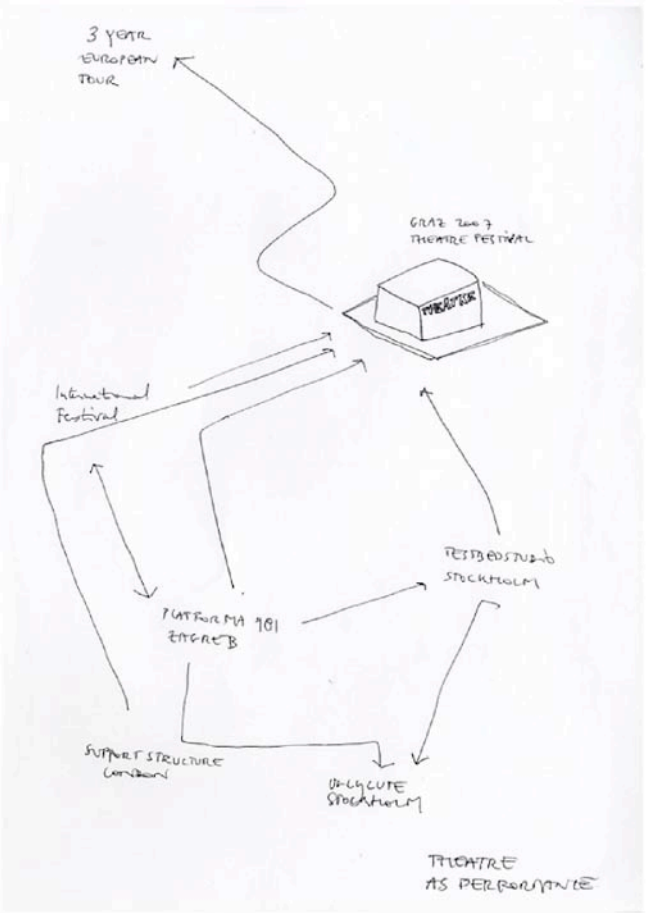 3 YEAR
EUROPEAN
TOUR
GRAZ 2007
THEATRE FESTIVAL
THEATRE
International
Festival
TESTBEDSTUDIO
STOCKHOLM
PLATFORMA 981
ZAGREB
SUPPORT STRUCTURE
LONDON
STOCKHOLM
THEATRE
AS PERFORMANCE